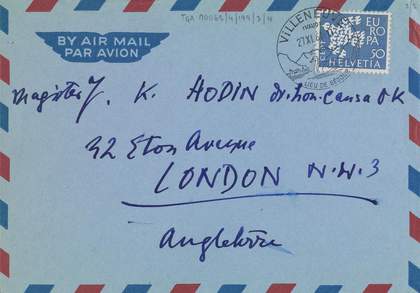 TGA 20062/4/199/3/4
BY AIR MAIL
PAR AVION
VILLENEUVE
27.XI.
LIEU DE SÉJOUR
EUROPA
50
HELVETIA
Magister J. K. HODIN dr. hon. causa
42 Eton Avenue
LONDON N.W.3
Angleterre